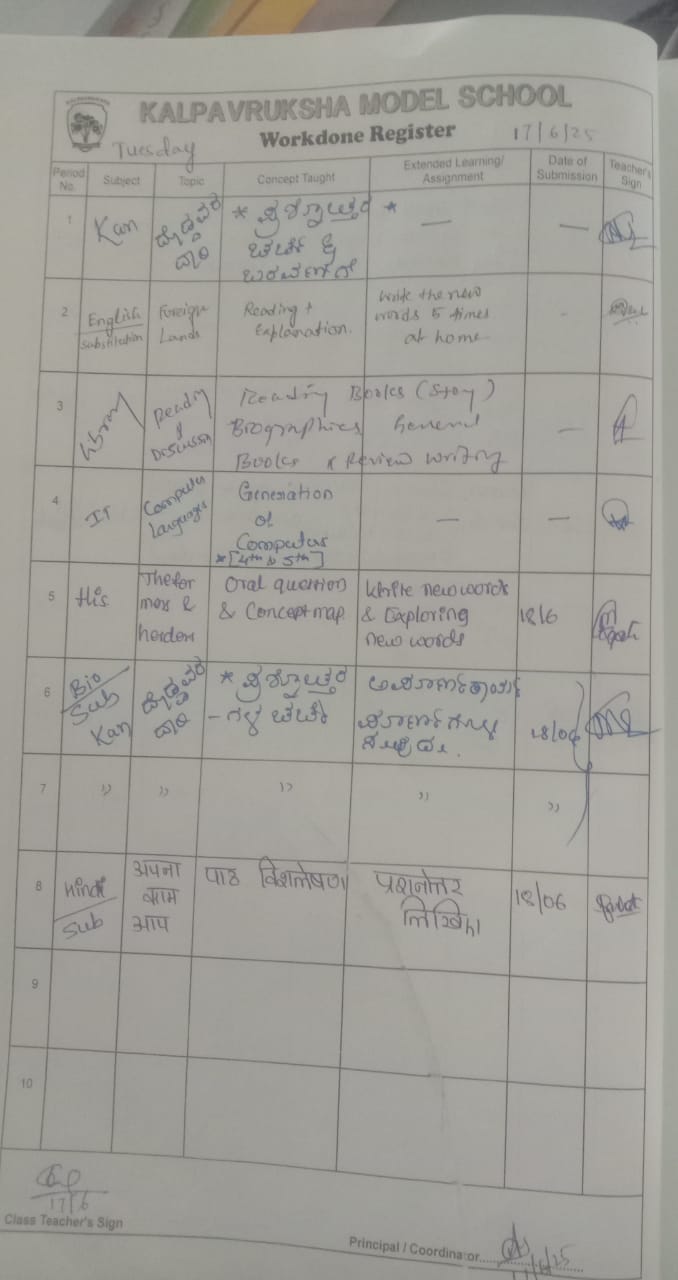 KALPAVRUKSHA MODEL SCHOOL
Workdone Register
17/6/25
Tuesday
Period No.
Subject
Topic
Concept Taught
Extended Learning/ Assignment
Date of Submission
Teacher's Sign
1
Kan
* ಪ್ರಶ್ನೋತ್ತರ *
ಚರ್ಚೆ &
ಬರವಣಿಗೆ
—
—
2
English
Substitution
Foreign
Lands
Reading +
Explanation.
Write the new
words 5 times
at home.
-
3
Library
Reading
&
Discussion
Reading Books (Story)
Biographies General
Books & Review writing
—
4
IT
Computer
Languages
Generation
of
Computers
*[4th & 5th]
—
—
5
His
The far
mers &
herders
Oral question
& Concept map
Write new words
& Exploring
new words
18/6
6
Bio
Sub
Kan
* ಪ್ರಶ್ನೋತ್ತರ
- ಗಳ ಚರ್ಚೆ
18/06
7
"
"
"
"
"
8
Hindi
Sub
अपना
काम
आप
पाठ विशलेषण
प्रशनोत्तर
लिखिए।
18/06
9
10
17/6
Class Teacher's Sign
Principal / Coordinator